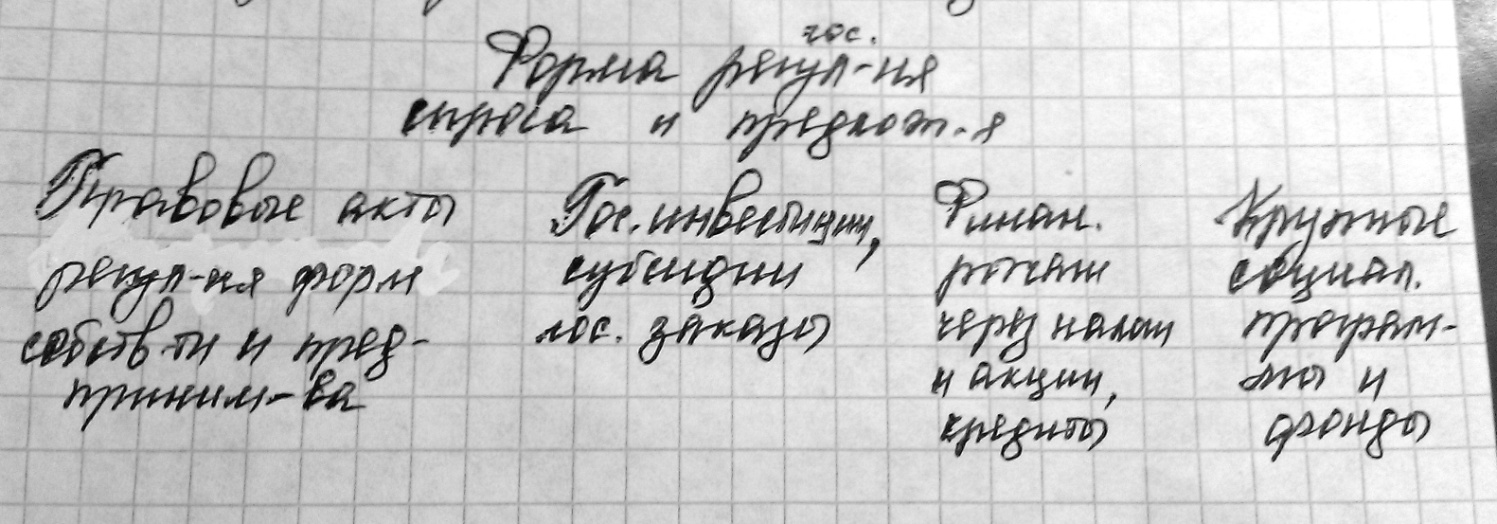 гос.
Форма регул-ия
спроса и предлож-я
Правовые акты
регул-ия форм
собств-ти и пред-
приним-ва
Гос. инвестиции,
субсидии
гос. заказы
Финан.
рычаги
через налоги
и акции,
кредиты
Крупные
социал.
програм-
мы и
фонды